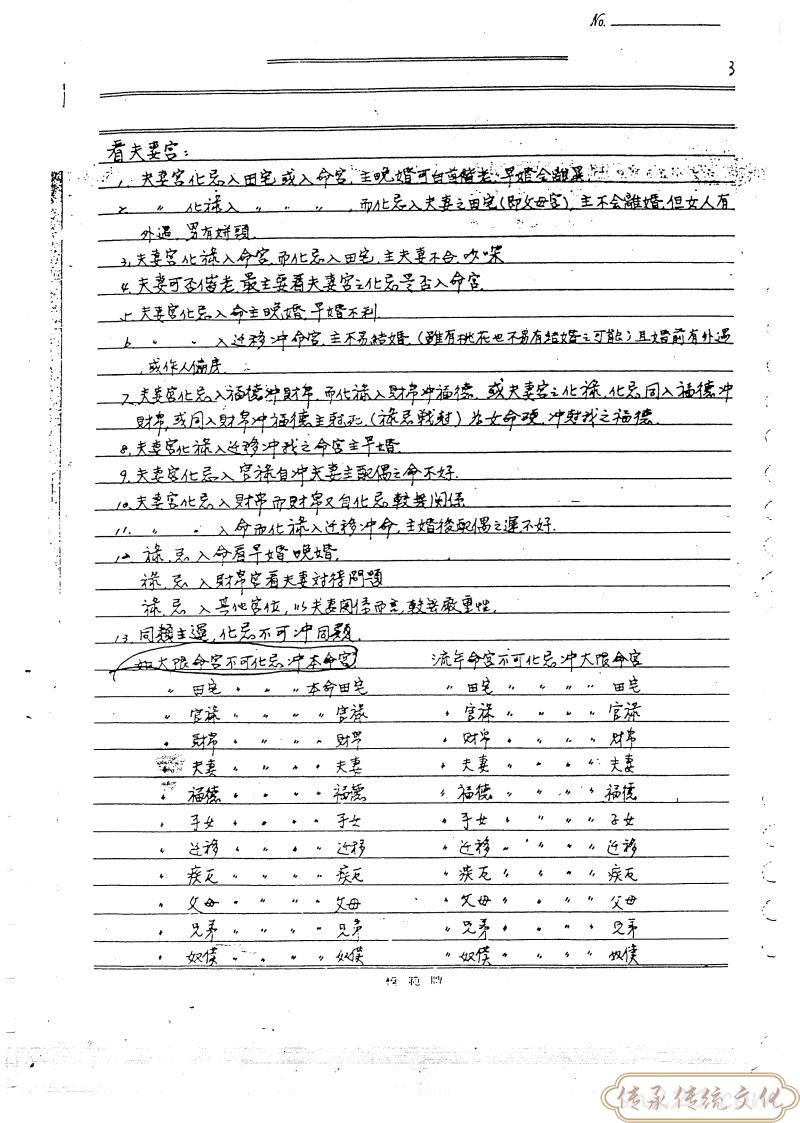 No.
3
看夫妻宫:
1. 夫妻宫化忌入田宅或入命宫,主晚婚可白首偕老,早婚会離異.
2. 〃 化祿入 〃 〃 〃 ,而化忌入夫妻之田宅(即父母宫),主不会離婚,但女人有
外遇,男有姘頭.
3. 夫妻宫化祿入命宫,而化忌入田宅,主夫妻不合,吵
4. 夫妻可否偕老,最主要看夫妻宫之化忌是否入命宫.
5. 夫妻宫化忌入命主晚婚,早婚不利.
6. 〃 〃 入迁移冲命宫,主不易結婚.(雖有桃花也不易有結婚之可能)且婚前有外遇
,或作人偏房.
7. 夫妻宫化忌入福德冲財帛,而化祿入財帛冲福德,或夫妻宫之化祿,化忌同入福德冲
財帛,或同入財帛冲福德主尅死,(祿忌戰尅)為女命硬,冲尅我之福德.
8. 夫妻宫化祿入迁移冲我之命宫主早婚.
9. 夫妻宫化忌入官祿自冲夫妻主配偶之命不好.
10. 夫妻宫化忌入財帛而財帛又自化忌較無関係
11. 〃 〃 入命而化祿入迁移冲命,主婚後配偶之運不好.
12. 祿,忌入命看早婚,晚婚.
祿,忌入財帛宫看夫妻対待問題
祿,忌入其他宫位,以夫妻関係而言,較無嚴重性.
13. 同類主運,化忌不可冲同類.
如大限命宫不可化忌冲本命宫 流年命宫不可化忌冲大限命宫
〃 田宅 〃 〃 〃 本命田宅 〃 田宅 〃 〃 〃 〃 田宅
〃 官祿 〃 〃 〃 〃 官祿 〃 官祿 〃 〃 〃 〃 官祿
〃 財帛 〃 〃 〃 〃 財帛 〃 財帛 〃 〃 〃 〃 財帛
〃 夫妻 〃 〃 〃 〃 夫妻 〃 夫妻 〃 〃 〃 〃 夫妻
〃 福德 〃 〃 〃 〃 福德 〃 福德 〃 〃 〃 〃 福德
〃 子女 〃 〃 〃 〃 子女 〃 子女 〃 〃 〃 〃 子女
〃 迁移 〃 〃 〃 〃 迁移 〃 迁移 〃 〃 〃 〃 迁移
〃 疾厄 〃 〃 〃 〃 疾厄 〃 疾厄 〃 〃 〃 〃 疾厄
〃 父母 〃 〃 〃 〃 父母 〃 父母 〃 〃 〃 〃 父母
〃 兄弟 〃 〃 〃 〃 兄弟 〃 兄弟 〃 〃 〃 〃 兄弟
〃 奴僕 〃 〃 〃 〃 奴僕 〃 奴僕 〃 〃 〃 〃 奴僕
模範牌
传承传统文化